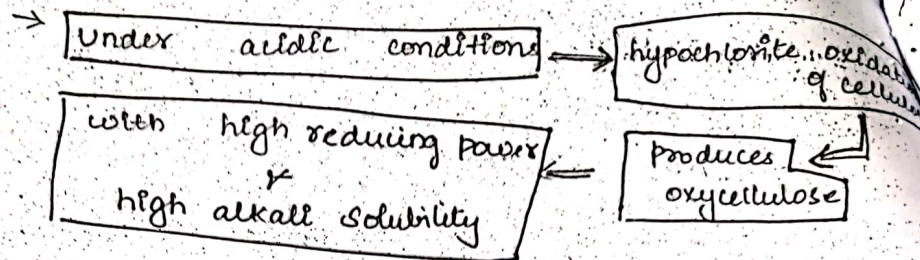 → Under acidic conditions ⟹
hypochlorite oxidat
of cellu
produces
oxycellulose
with high reducing power
&
high alkali solubility